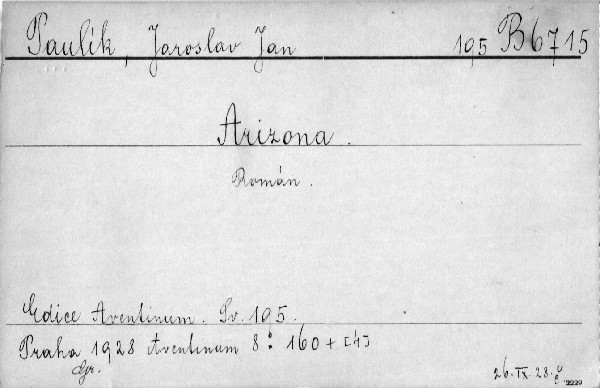 Paulík, Jaroslav Jan 195 B6715
Arizona.
Román.
Edice Aventinum. Sv. 105.
Praha 1928 Aventinum 8° 160 + [4]
Gr.
26.IX.28.
2229